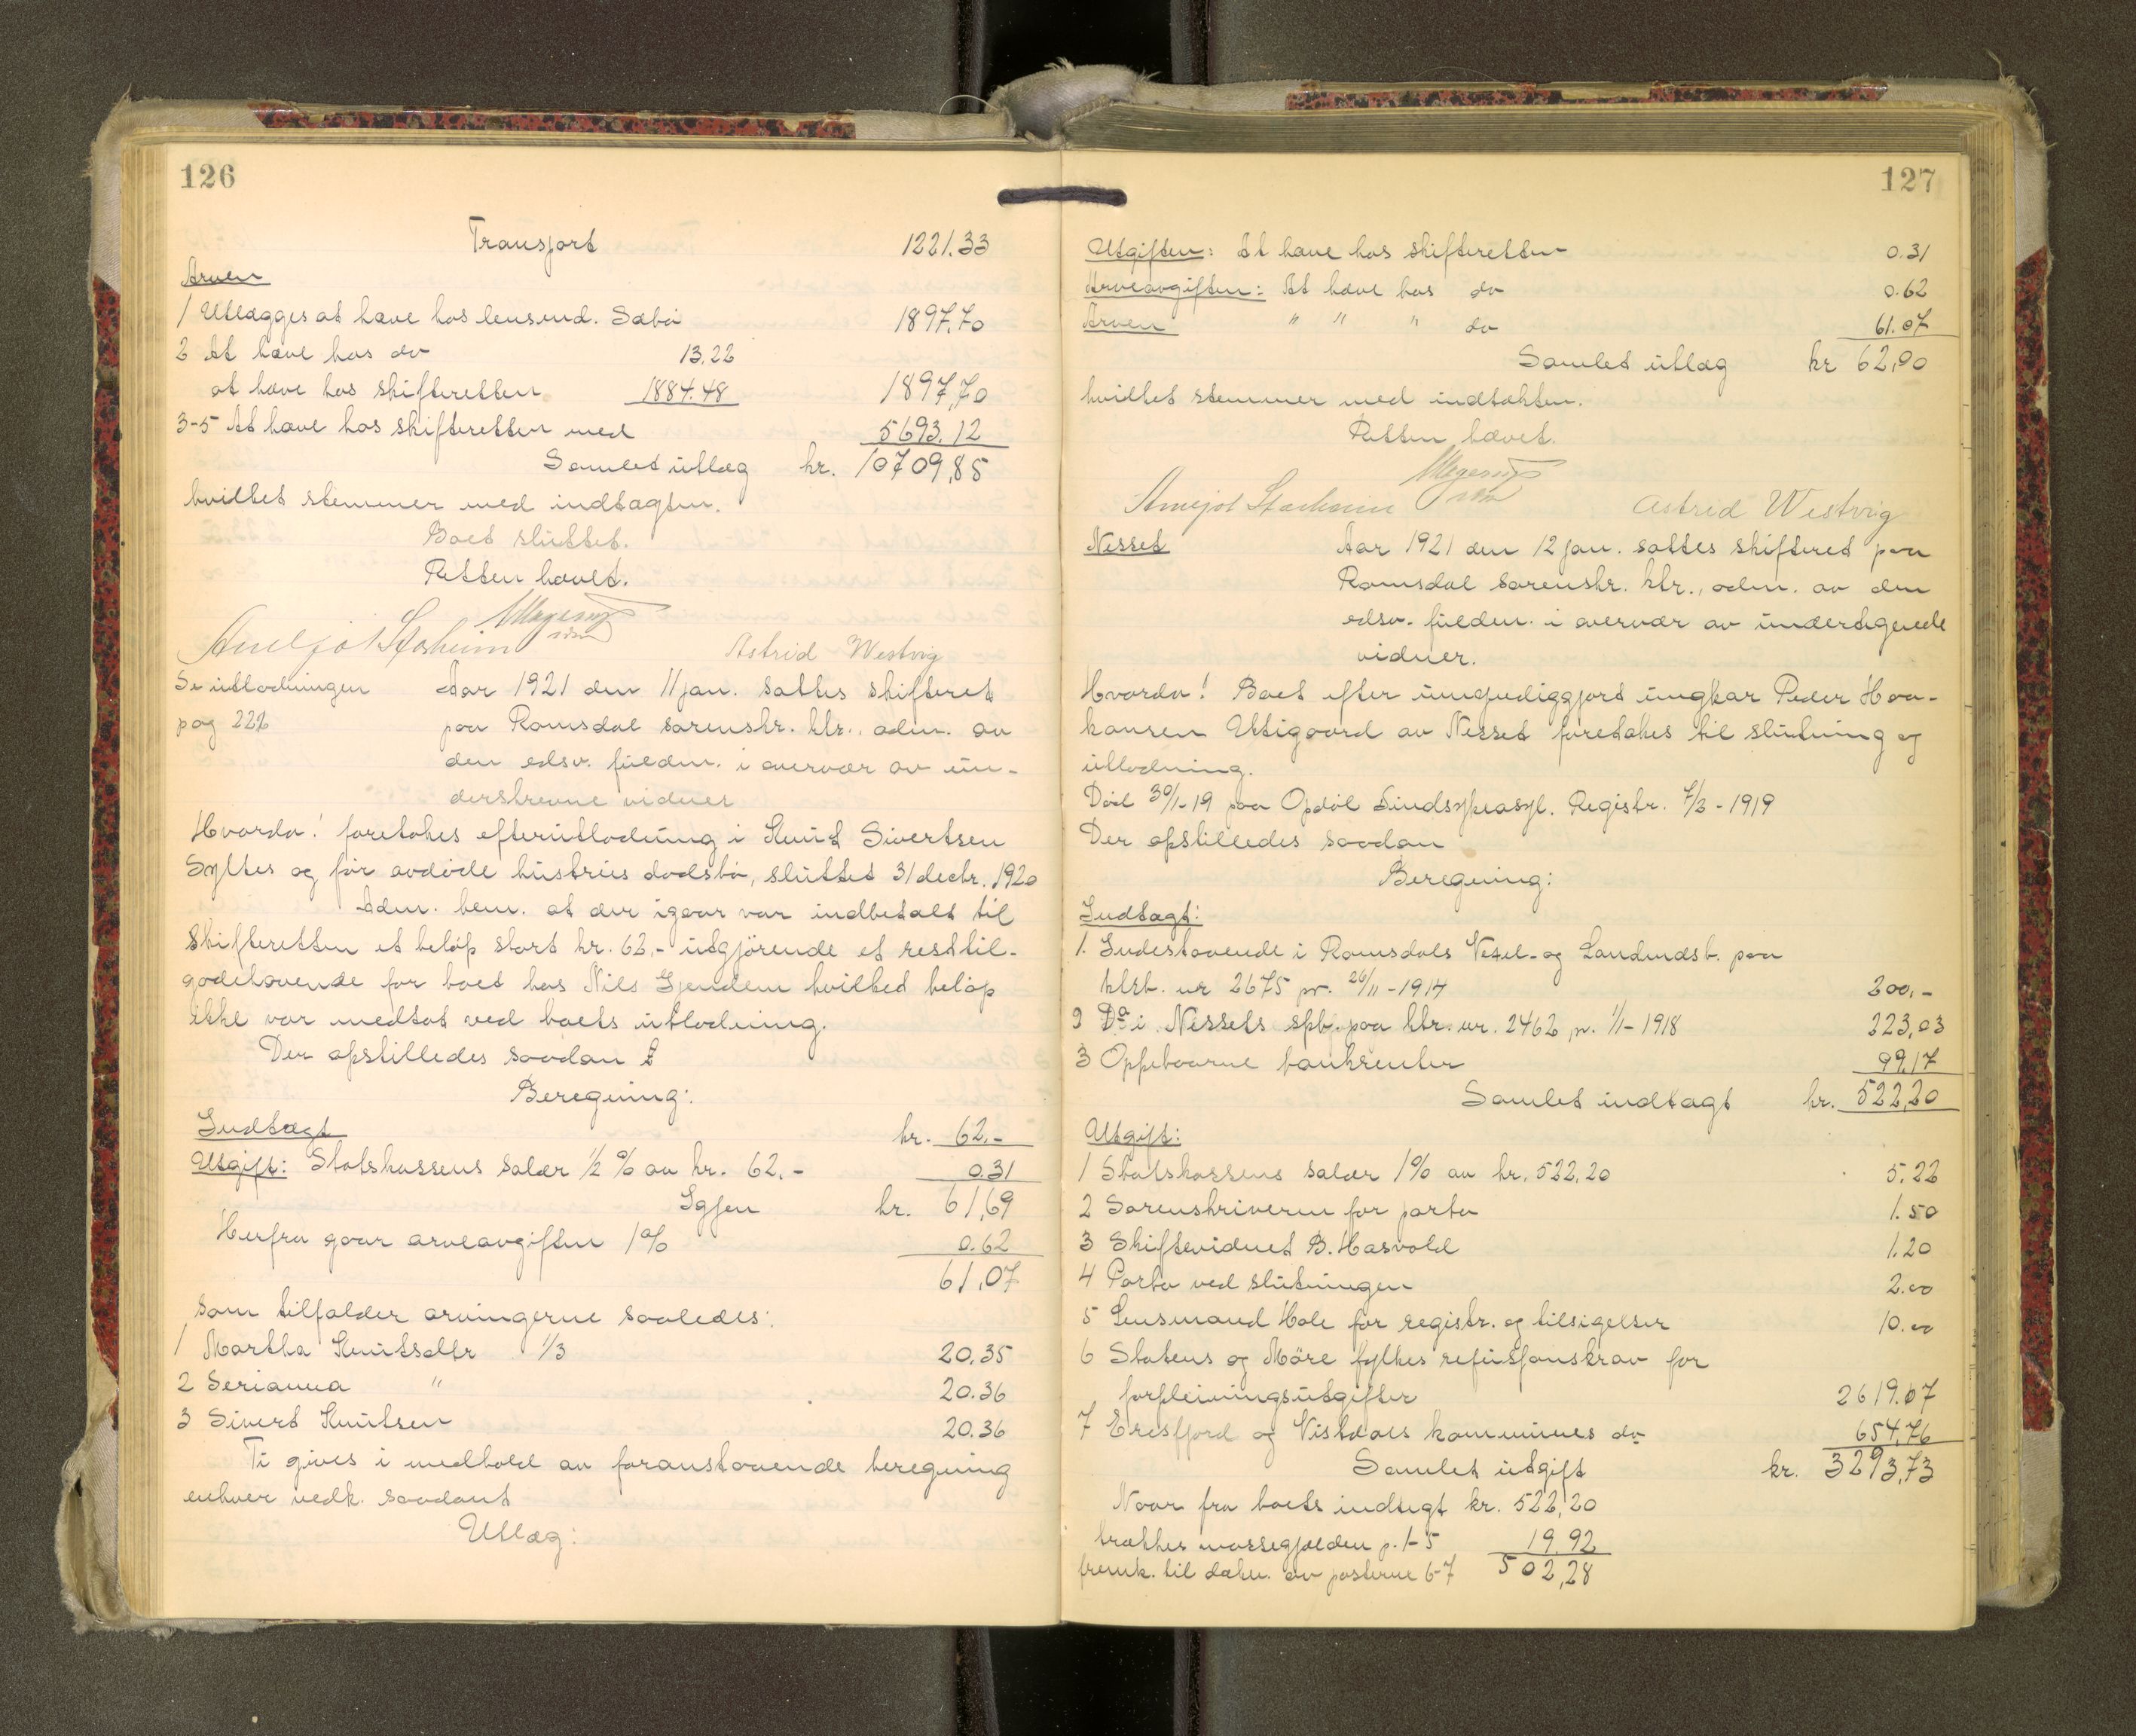 126
Transport 1221.33
Arven
1 Utlægges at hæve hos lensmd. Sæbø 1897,70
2 At hæve hos do 13.22
at hæve hos skifteretten 1884.48 1897,70
3-5 At hæve hos skifteretten med 5693.12
Samlet utlæg kr. 10709,85
hvilket stemmer med indtægten.
Boet sluttet.
Retten hævet.
Astrid Westvig
Se utlodningen
pag 226
Aar 1921 den 11 jan. sattes skifteret
paa Romsdal sorenskr. ktr., adm. av
den edsv. fuldm. i overvær av un-
derskrevne vidner
Hvorda! foretokes efterutlodning i Knut Sivertsen
Syltes og før avdøde hustrus dødsbo, sluttet 31 decbr. 1920
Adm. bem. at der igaar var indbetalt til
skifteretten et beløp stort kr. 62,- utgjørende et resttil-
godehavende for boet hos Nils Gjendem hvilket beløp
ikke var medtat ved boets utlodning.
Der opstilledes saadan
Beregning:
Indtægt kr. 62.-
Utgift: Statskassens salær ½ % av kr. 62.- 0.31
Igjen kr. 61,69
Herfra gaar arveavgiften 1% 0.62
61,07
som tilfalder arvingerne saaledes:
1 Martha Knutsdtr 1/3 20.35
2 Serianna " 20.36
3 Sivert Knutsen 20.36
Ti gives i medhold av foranstaaende beregning
enhver vedk. saadant
Utlæg:
127
Utgiften: At hæve hos skifteretten 0.31
Arveavgiften: At hæve hos do 0.62
Arven " " " do 61.07
Samlet utlæg kr 62,00
hvilket stemmer med indtækten.
Retten hævet.
Astrid Westvig
Nesset
Aar 1921 den 12 jan. sattes skifteret paa
Romsdal sorenskr. ktr., adm. av den
edsv. fuldm. i overvær av undertegnede
vidner.
Hvorda! Boet efter umyndiggjort ungkar Peder Haa-
konsen Utigaard av Nesset foretokes til slutning og
utlodning.
Død 30/1-19 paa Opdøl Sindsykeasyl. Registr. 7/3-1919
Der opstilledes saadan
Beregning:
Indtægt:
1. Indestaaende i Romsdals Vexel- og Landmdsb. paa
ktrb. nr 2675 pr. 26/11-1914 200,-
2 Do i Nessets spb. paa ktr. nr. 2462 pr. 1/1-1918 223,03
3 Oppebaarne bankrenter 99,17
Samlet indtægt kr. 522,20
Utgift:
1 Statskassens salær 1% av kr. 522.20 5.22
2 Sorenskriveren for porto 1.50
3 Skiftevidnet B. Hasvold 1.20
4 Porto ved slutningen 2.00
5 Lensmand Hole for registr. og tilsigelser 10.00
6 Statens og Møre fylkes refusjonskrav for
forpleiningsutgifter 2619.07
7 Eresfjord og Vistdals kommunes do 654,76
Samlet utgift kr. 3293,73
Naar fra boets indtægt kr. 522,20
trækkes massegjælden p. 1-5 19.92
fremk. til dækn. av posterne 6-7 502,28